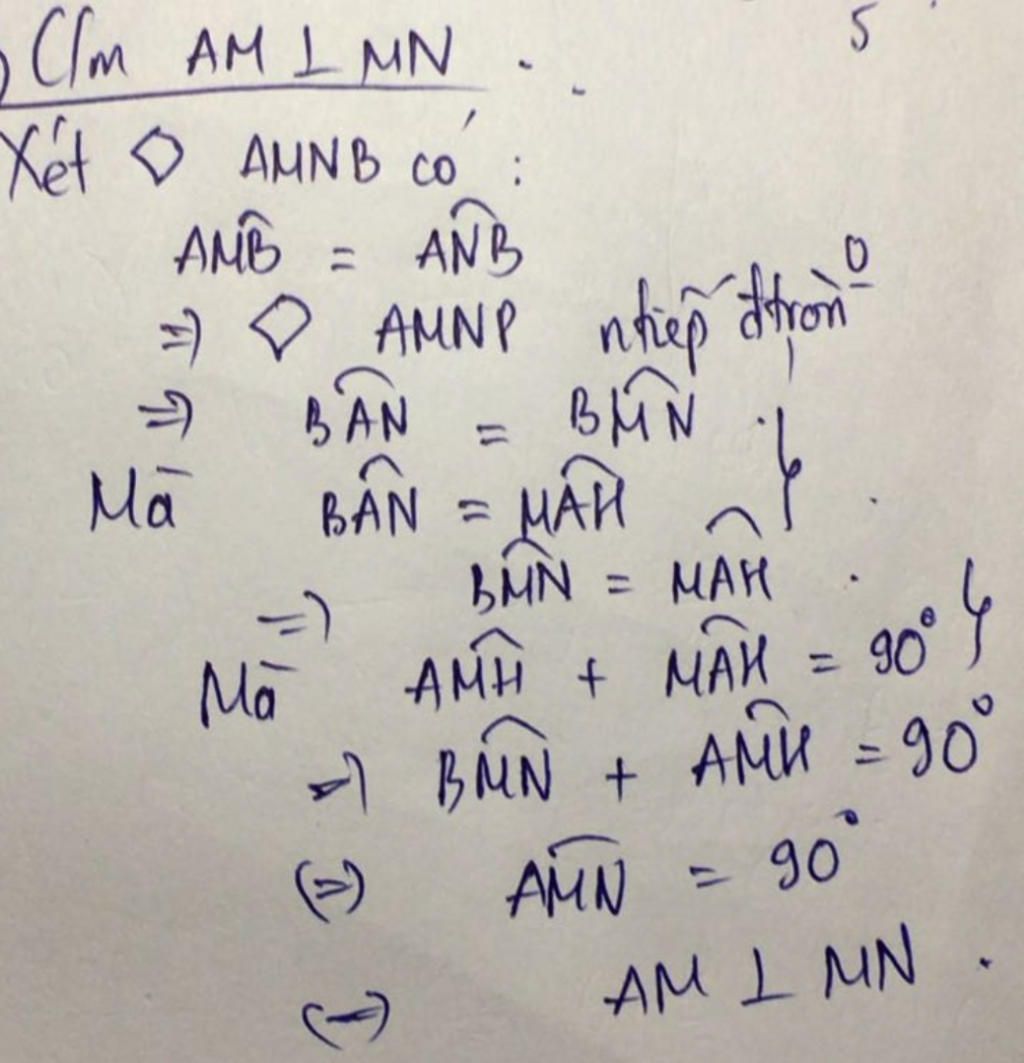 ) C/m AM ⊥ MN .
5
Xét ◇ AMNB có :
AMB̂ = AN̂B
=) ◇ AMNP ntiếp đtròn
=) BÂN = BM̂N
Mà BÂN = MÂH
=) BM̂N = MÂH
Mà AM̂H + MÂH = 90°
=) BM̂N + AM̂H = 90°
(=) AM̂N = 90°
(=) AM ⊥ MN .